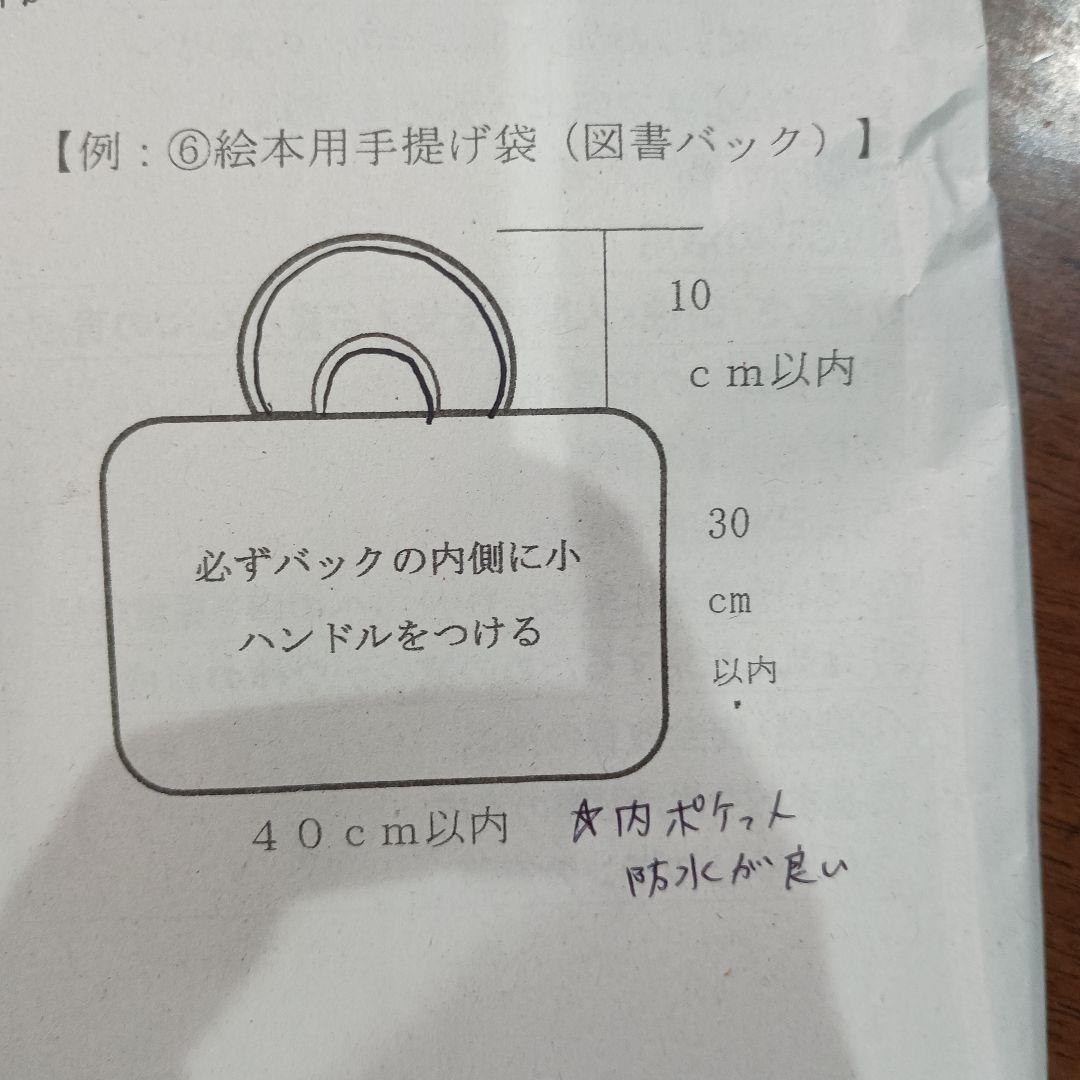 【例：⑥絵本用手提げ袋（図書バック）】
10
ｃｍ以内
必ずバックの内側に小
ハンドルをつける
30
cm
以内
４０ｃｍ以内
☆内ポケット
防水が良い